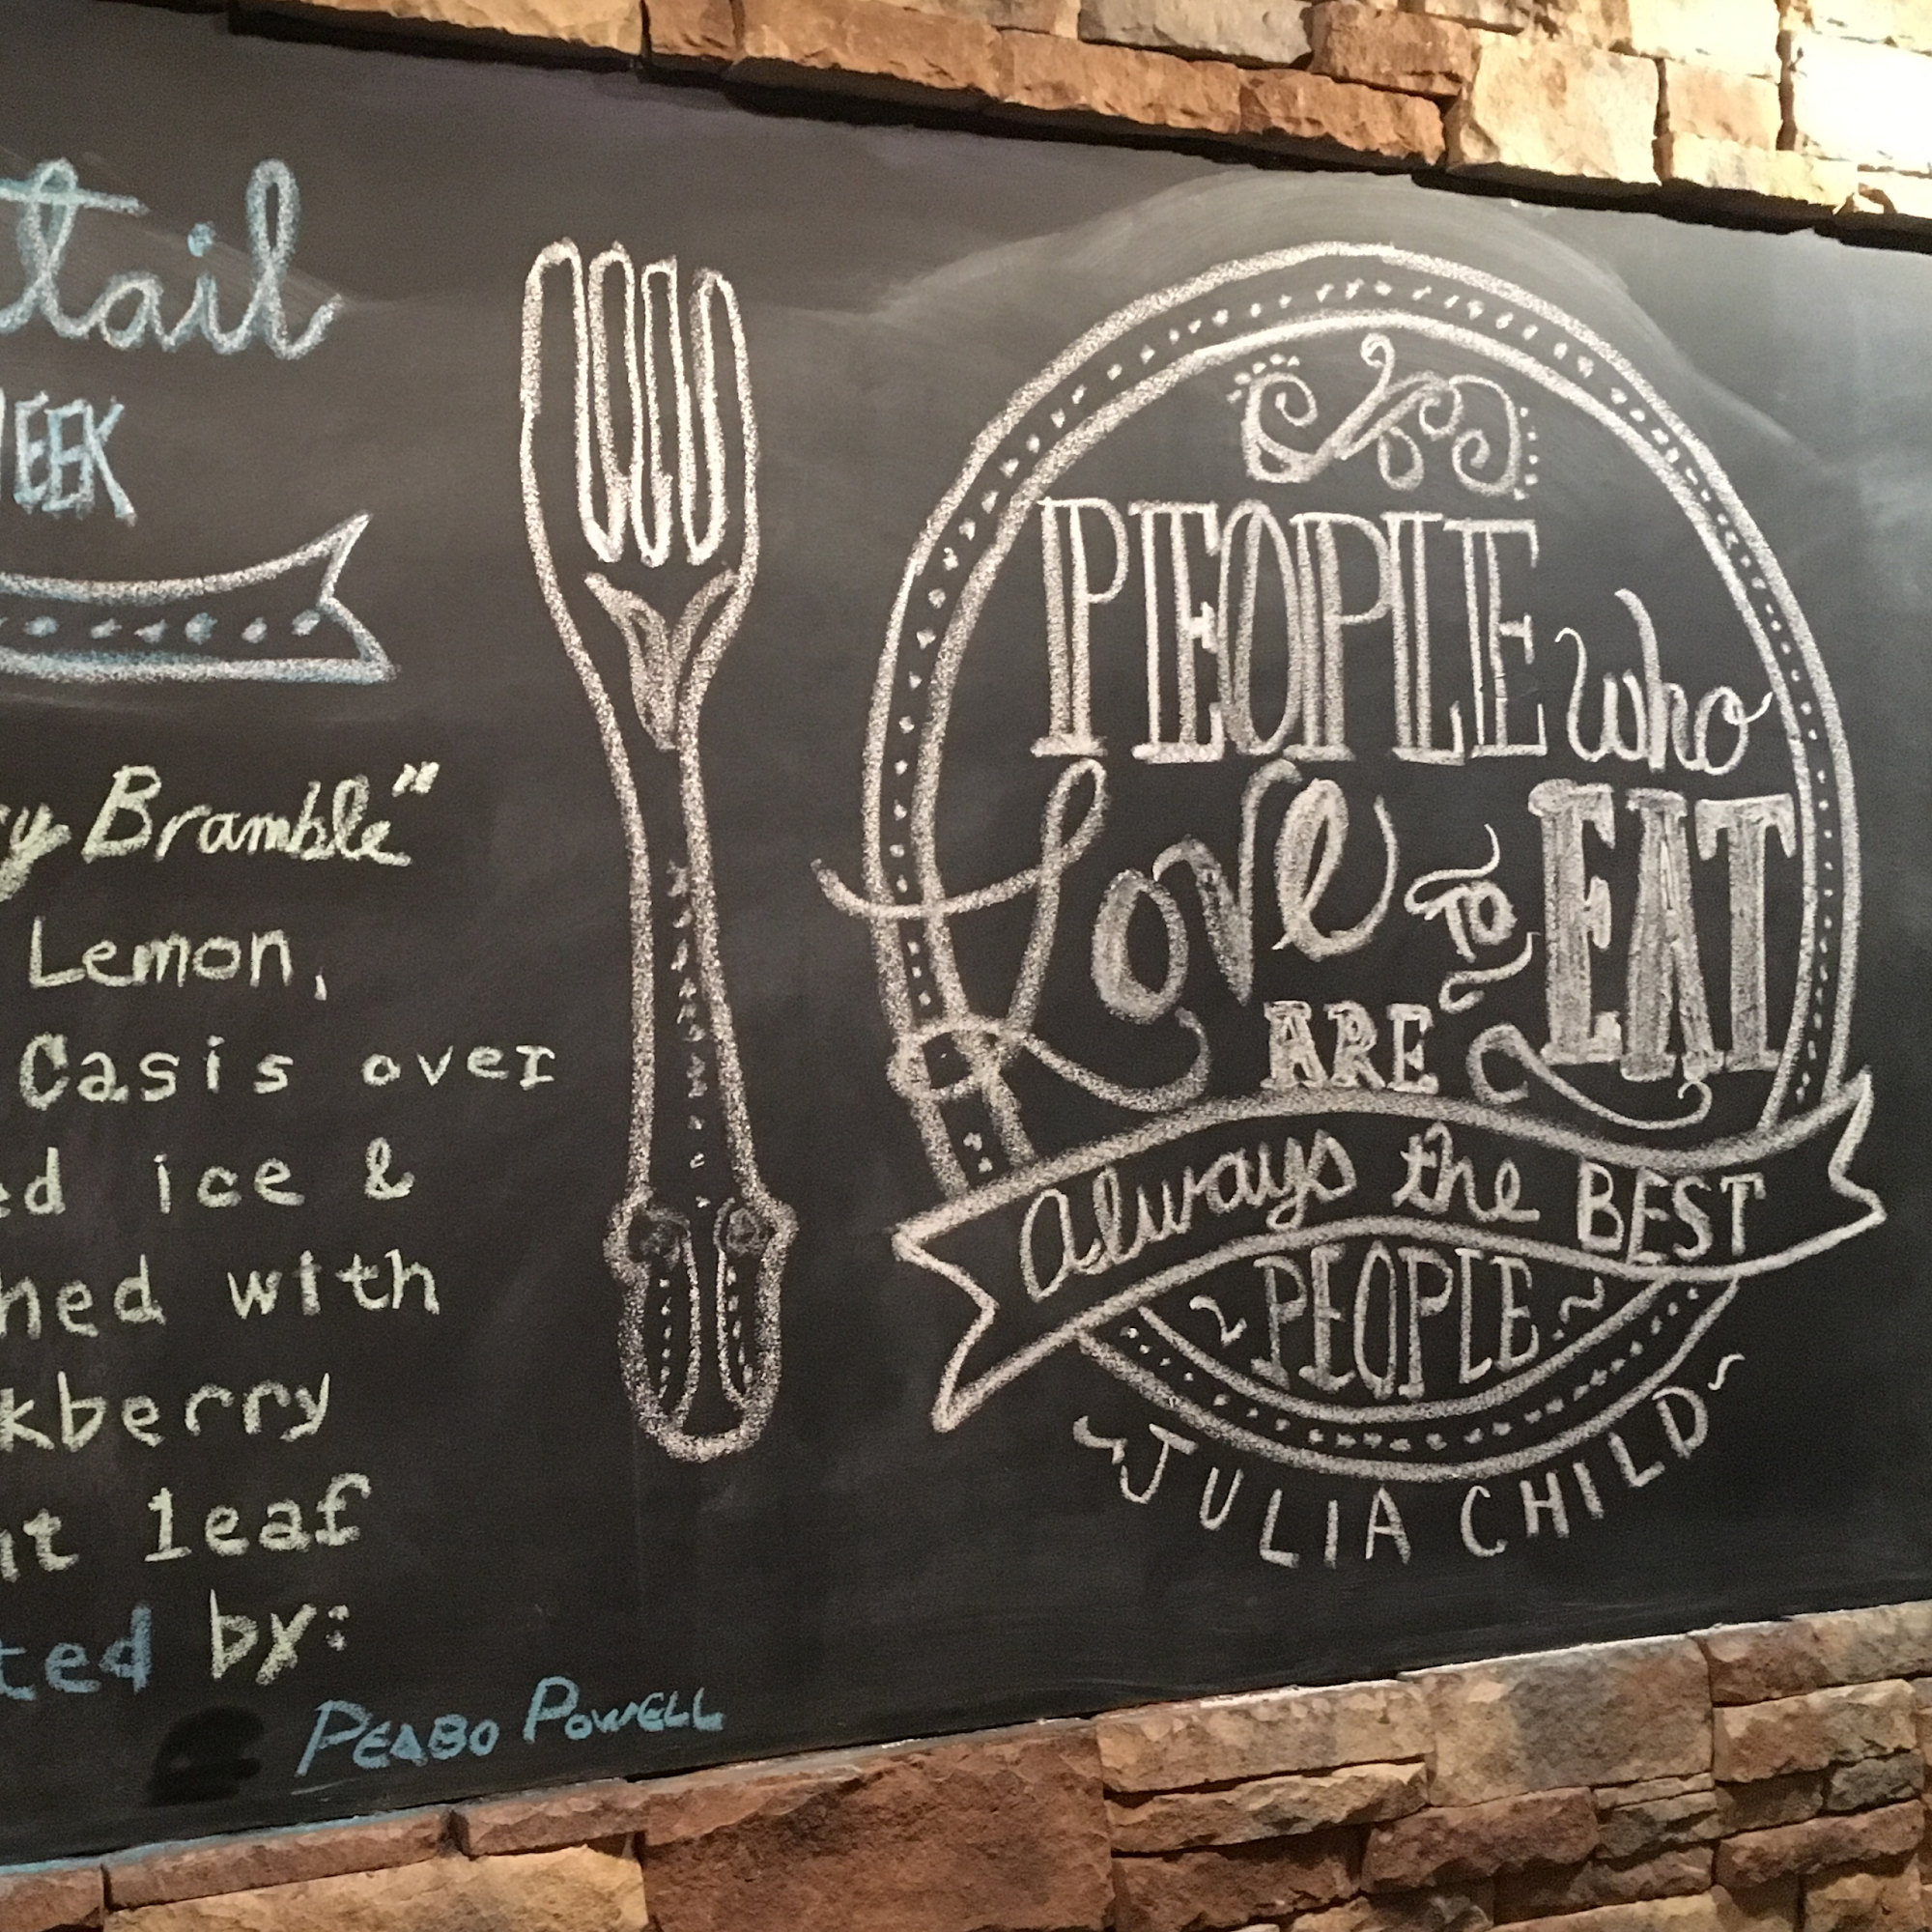 tail
EEK
y Bramble"
Lemon,
Casis over
ed ice &
hed with
kberry
t leaf
ted by:
PEABO POWELL
PEOPLE who
Love to EAT
ARE
Always the BEST
~PEOPLE~
~JULIA CHILD~